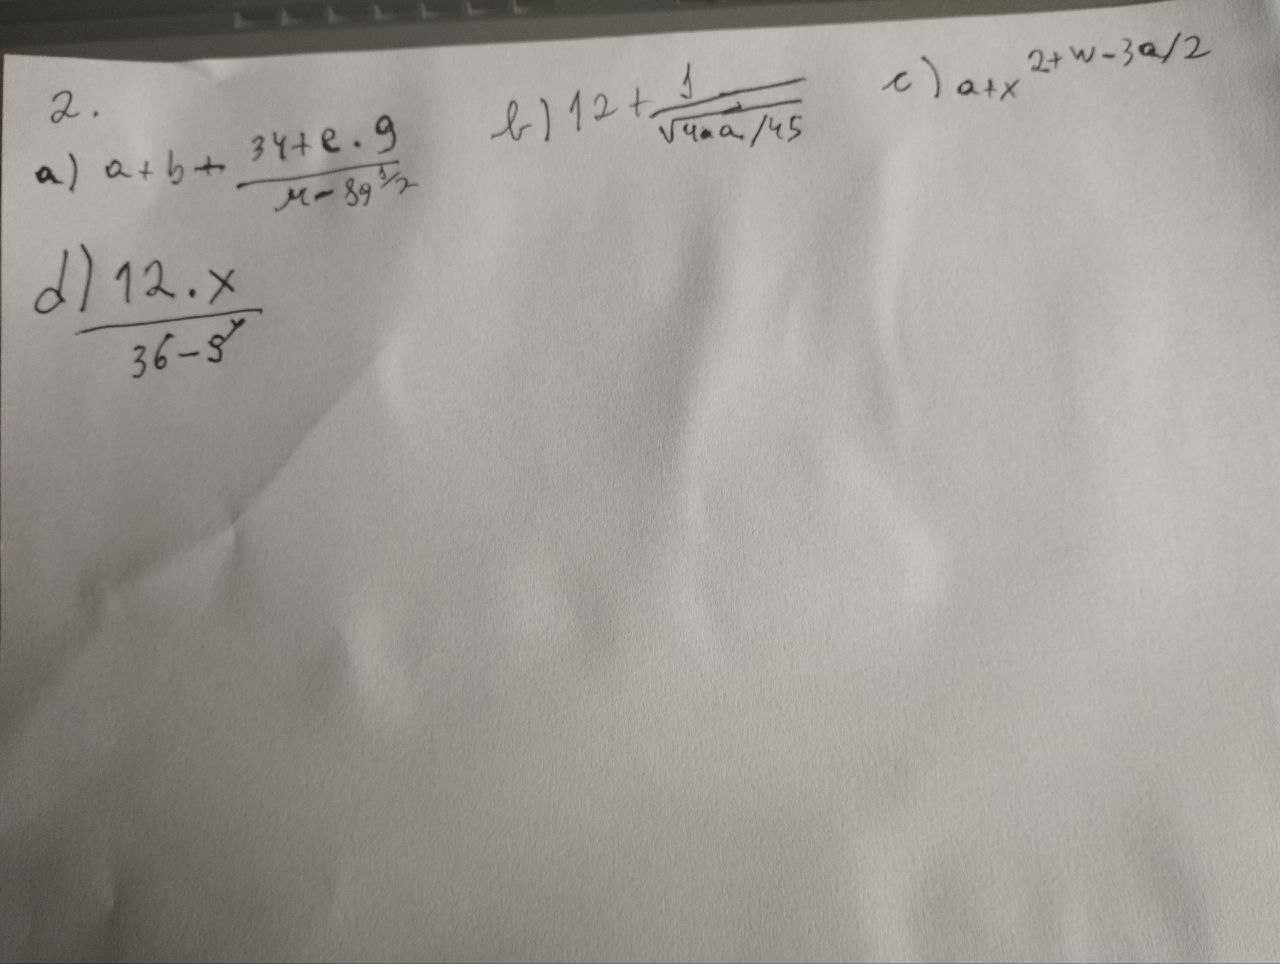 2.
a) a + b + (34 + e · g)/(μ - 89^1/2) b) 12 + 1/√(4·a/45) c) a+x^2+w-3a/2
d) (12 · x)/(36 - 9^y)